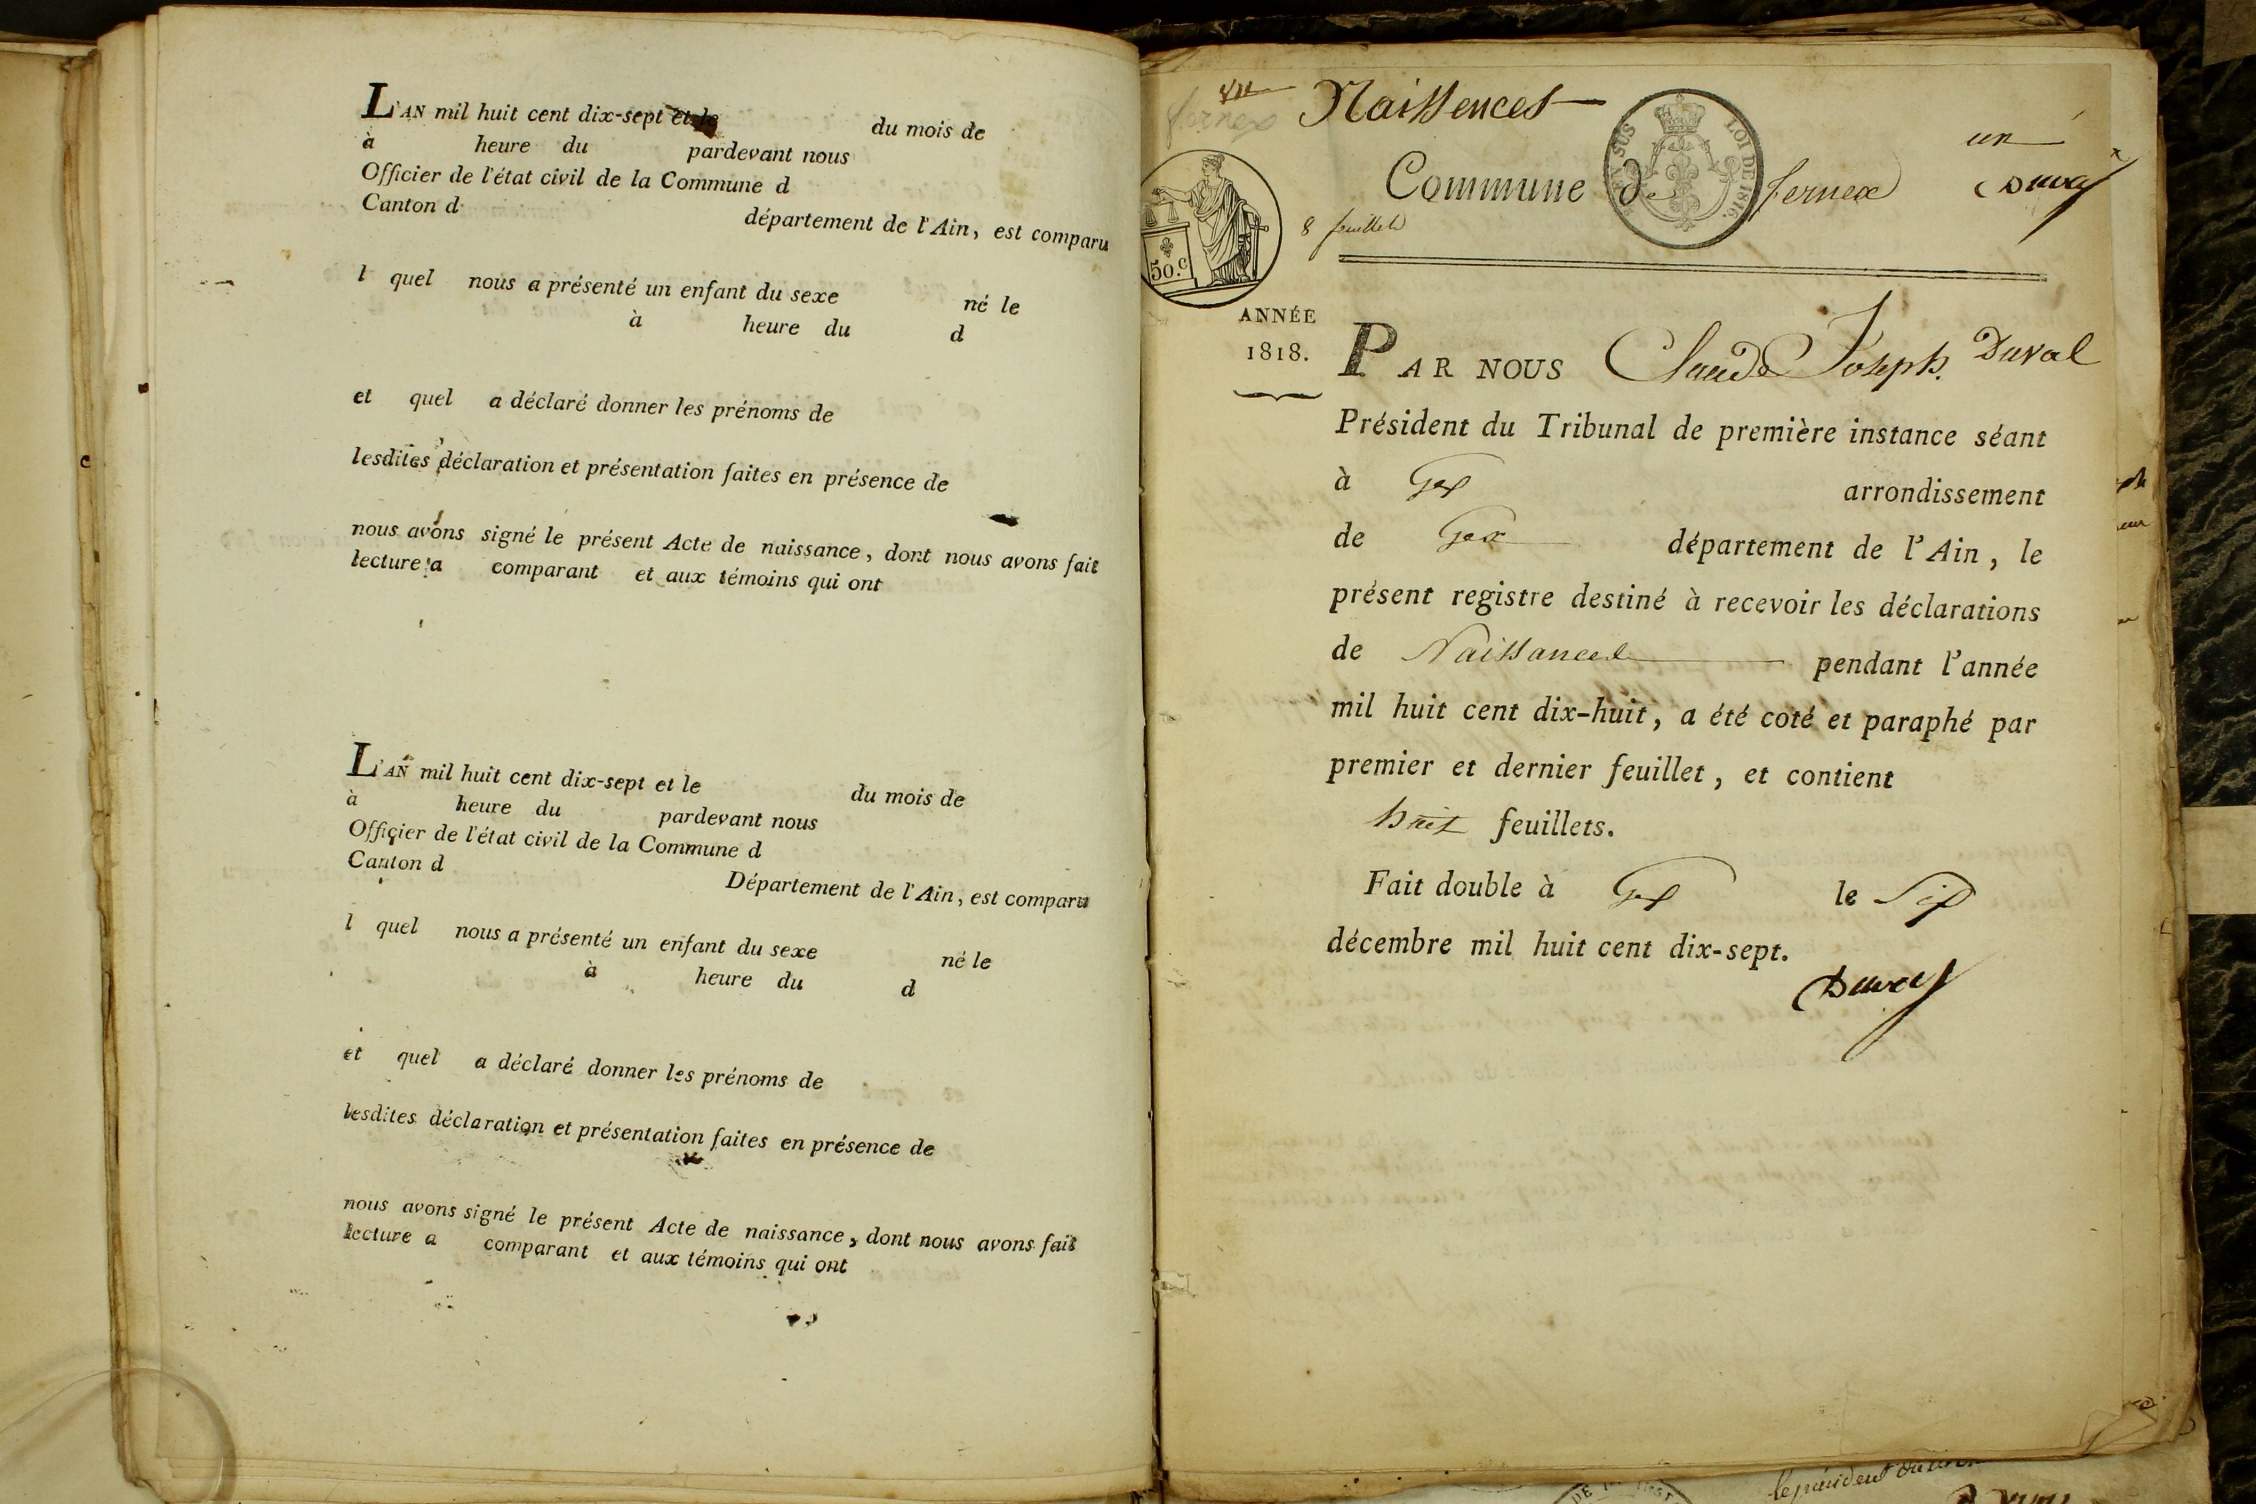 L'AN mil huit cent dix-sept et le du mois de
à heure du pardevant nous
Officier de l'état civil de la Commune d
Canton d département de l'Ain, est comparu
l quel nous a présenté un enfant du sexe né le
à heure du d
et quel a déclaré donner les prénoms de
lesdites déclaration et présentation faites en présence de
nous avons signé le présent Acte de naissance, dont nous avons fait
lecture a comparant et aux témoins qui ont
L'AN mil huit cent dix-sept et le du mois de
à heure du pardevant nous
Officier de l'état civil de la Commune d
Canton d Département de l'Ain, est comparu
l quel nous a présenté un enfant du sexe né le
à heure du d
et quel a déclaré donner les prénoms de
lesdites déclaration et présentation faites en présence de
nous avons signé le présent Acte de naissance, dont nous avons fait
lecture a comparant et aux témoins qui ont
Naissences
fernex
un
Commune de fernex Duval
SUS LOI DE 1816.
50.c
8 feuillets
ANNÉE
1818.
PAR NOUS Claude Joseph Duval
Président du Tribunal de première instance séant
à Gex arrondissement
de Gex département de l'Ain, le
présent registre destiné à recevoir les déclarations
de Naissances pendant l'année
mil huit cent dix-huit, a été coté et paraphé par
premier et dernier feuillet, et contient
huit feuillets.
Fait double à Gex le Six
décembre mil huit cent dix-sept.
Duval
le président du